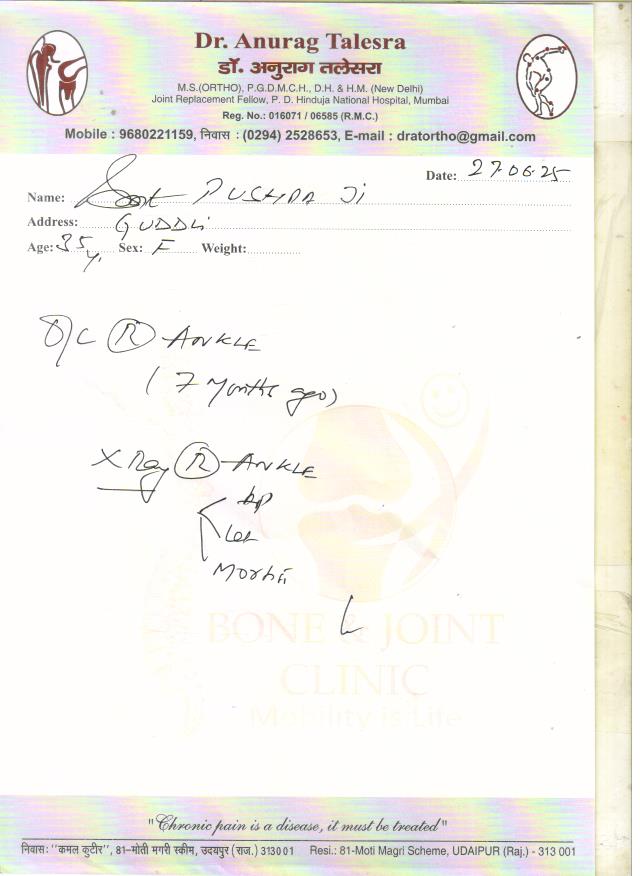 Dr. Anurag Talesra
डॉ. अनुराग तलेसरा
M.S.(ORTHO), P.G.D.M.C.H., D.H. & H.M. (New Delhi)
Joint Replacement Fellow, P. D. Hinduja National Hospital, Mumbai
Reg. No.: 016071 / 06585 (R.M.C.)
Mobile : 9680221159, निवास : (0294) 2528653, E-mail : dratortho@gmail.com
Date: 27.06.25
Name: PUSHPA Ji
Address: GUDDLi
Age: 35 y. Sex: F Weight:
O/C R ANKLE
( 7 Months ago)
X Ray R ANKLE
Ap
Lat
BONE & JOINT
CLINIC
Mobility is Life
"Chronic pain is a disease, it must be treated"
निवास: "कमल कुटीर", 81-मोती मगरी स्कीम, उदयपुर (राज.) 313001 Resi.: 81-Moti Magri Scheme, UDAIPUR (Raj.) - 313 001